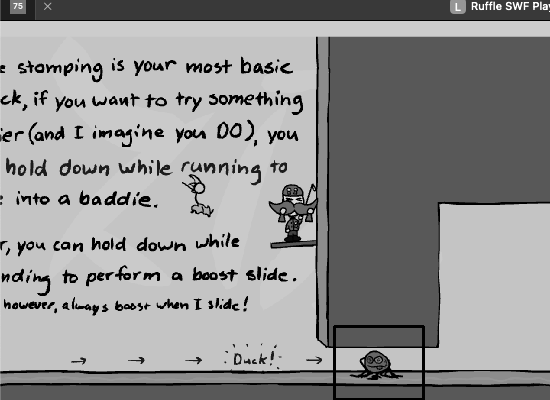 75
L Ruffle SWF Play
e stomping is your most basic
ck, if you want to try something
ier (and I imagine you DO), you
hold down while running to
e into a baddie.
r, you can hold down while
nding to perform a boost slide.
however, always boost when I slide!
Duck!